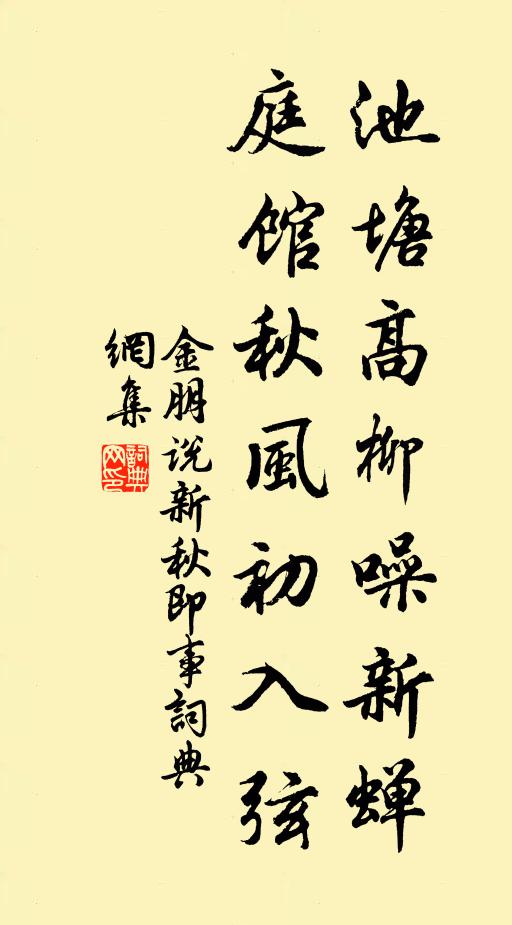 池塘高柳噪新蝉
庭馆秋風初入弦
金朋说新秋即事詞典
網集
詞典
网印